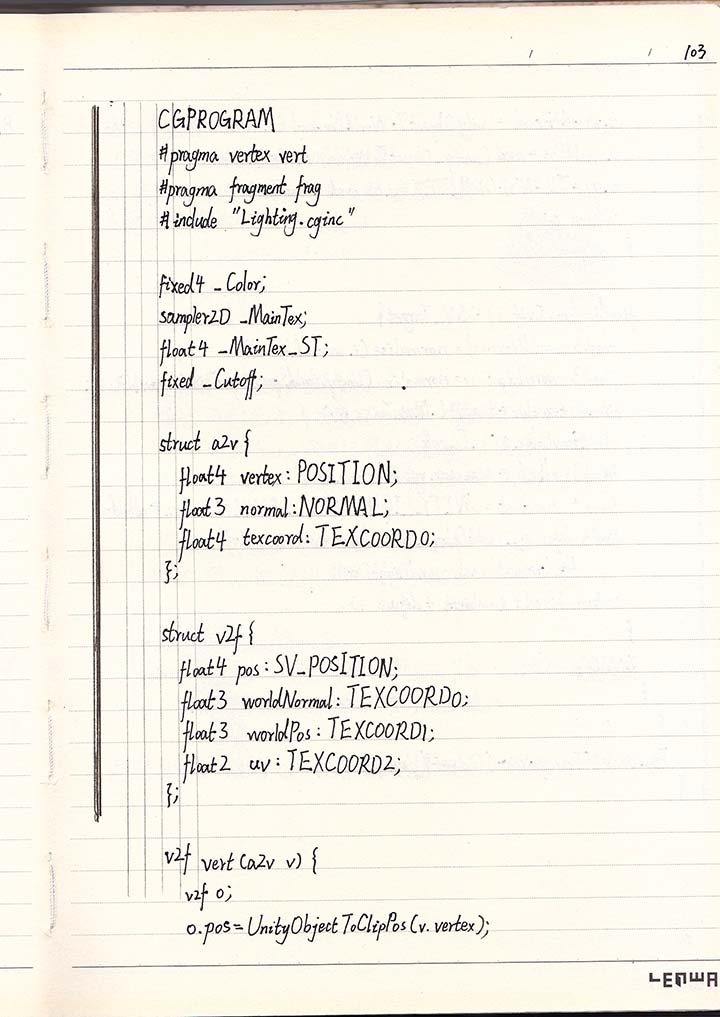 103
CGPROGRAM
#pragma vertex vert
#pragma fragment frag
#include "Lighting.cginc"
fixed4 _Color;
sampler2D _MainTex;
float4 _MainTex_ST;
fixed _Cutoff;
struct a2v {
float4 vertex: POSITION;
float3 normal:NORMAL;
float4 texcoord: TEXCOORD0;
};
struct v2f {
float4 pos: SV_POSITION;
float3 worldNormal: TEXCOORD0;
float3 worldPos: TEXCOORD1;
float2 uv: TEXCOORD2;
};
v2f vert(a2v v) {
v2f o;
o.pos=UnityObjectToClipPos(v.vertex);